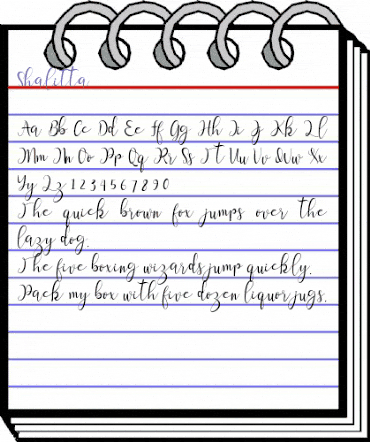 Shalitta
Aa Bb Cc Dd Ee Ff Gg Hh Ii Jj Kk Ll
Mm Nn Oo Pp Qq Rr Ss Tt Uu Vv Ww Xx
Yy Zz 1 2 3 4 5 6 7 8 9 0
The quick brown fox jumps over the
lazy dog.
The five boxing wizards jump quickly.
Pack my box with five dozen liquor jugs.